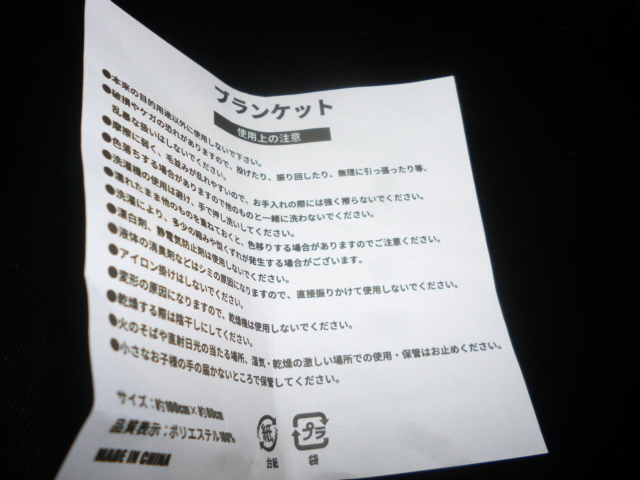 ブランケット
使用上の注意
●本来の目的用途以外に使用しないで下さい。
●破損やケガの恐れがありますので、投げたり、振り回したり、無理に引っ張ったり等、
乱暴な扱いはしないでください。
●摩擦に弱く、毛並みが乱れやすいので、お手入れの際には強く擦らないでください。
●色落ちする場合がありますので他のものと一緒に洗わないでください。
●洗濯機の使用は避け、手で押し洗いしてください。
●濡れたまま他のものを重ねておくと、色移りする場合がありますのでご注意ください。
●洗濯により、多少の縮みや型くずれが発生する場合がございます。
●漂白剤、静電気防止剤は使用しないでください。
●液体の消臭剤などはシミの原因になりますので、直接振りかけて使用しないでください。
●アイロン掛けはしないでください。
●変形の原因になりますので、乾燥機は使用しないでください。
●乾燥する際は陰干しにしてください。
●火のそばや直射日光の当たる場所、湿気・乾燥の激しい場所での使用・保管はお止めください。
●小さなお子様の手の届かないところで保管してください。
サイズ:約100cm×約80cm
品質表示:ポリエステル100%
MADE IN CHINA
紙
台紙
プラ
袋